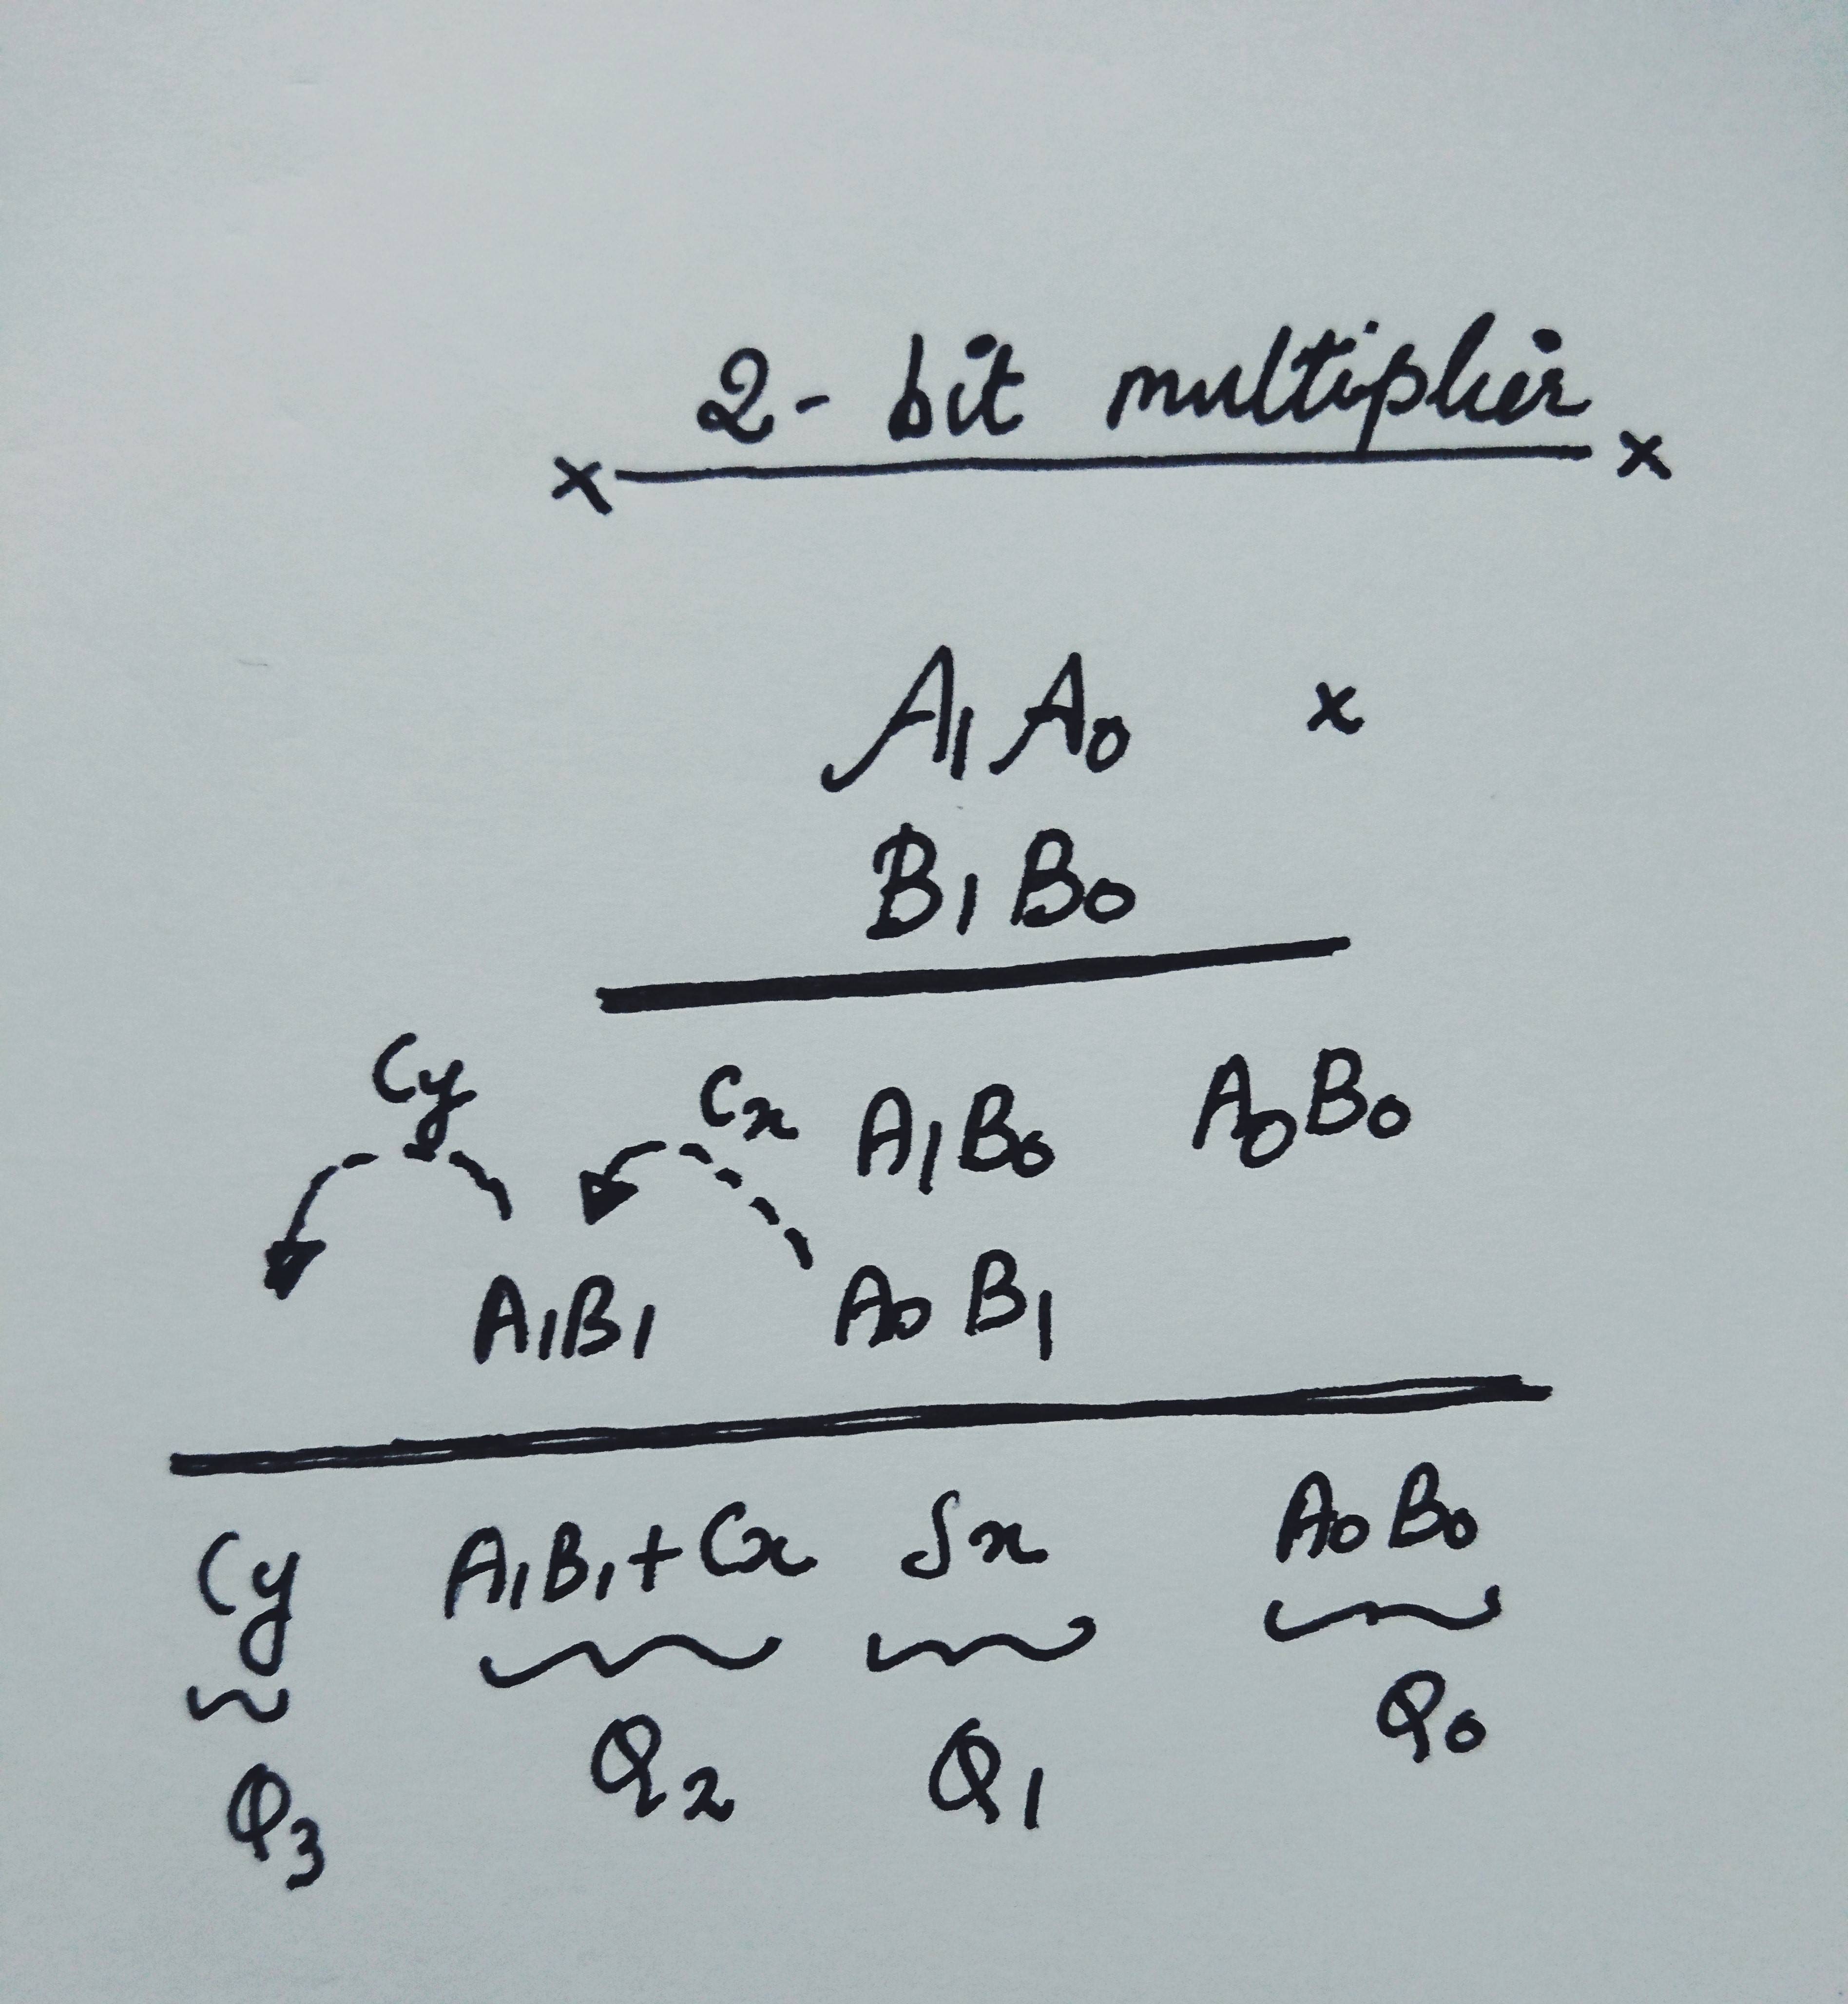 2- bit multiplier
x x
A1 A0 x
B1 B0
Cy Cx A1B0 A0B0
A1B1 A0 B1
Cy A1B1+Cx Sx A0B0
Q3 Q2 Q1 Q0